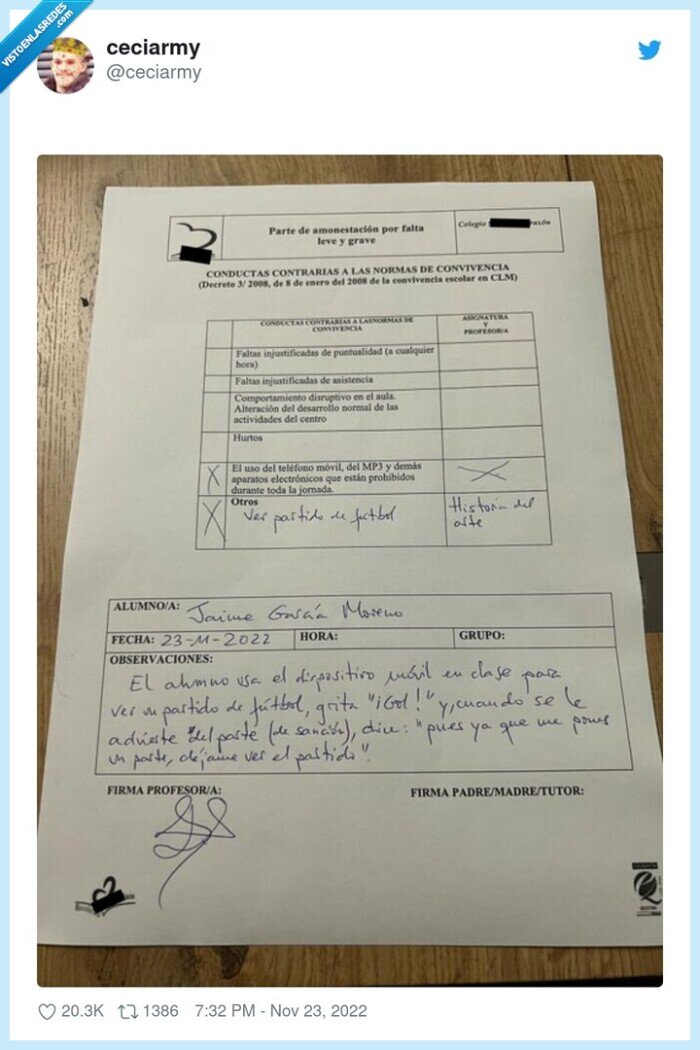 VISTOENLASREDES
.com
ceciarmy
@ceciarmy
Parte de amonestación por falta
leve y grave
Colegio
razón
CONDUCTAS CONTRARIAS A LAS NORMAS DE CONVIVENCIA
(Decreto 3/ 2008, de 8 de enero del 2008 de la convivencia escolar en CLM)
CONDUCTAS CONTRARIAS A LASNORMAS DE
CONVIVENCIA
ASIGNATURA
Y
PROFESOR/A
Faltas injustificadas de puntualidad (a cualquier
hora)
Faltas injustificadas de asistencia
Comportamiento disruptivo en el aula.
Alteración del desarrollo normal de las
actividades del centro
Hurtos
X
El uso del teléfono móvil, del MP3 y demás
aparatos electrónicos que están prohibidos
durante toda la jornada.
X
Otros
Ver partido de fútbol
Historia del
arte
ALUMNO/A: Jaime García Moreno
FECHA: 23-11-2022 HORA: GRUPO:
OBSERVACIONES:
El alumno usa el dispositivo móvil en clase para
ver un partido de fútbol, grita "¡Gol!" y, cuando se le
advierte del parte (de sanción), dice: "pues ya que me pones
un parte, déjame ver el partido".
FIRMA PROFESOR/A: FIRMA PADRE/MADRE/TUTOR:
20.3K 1386 7:32 PM - Nov 23, 2022